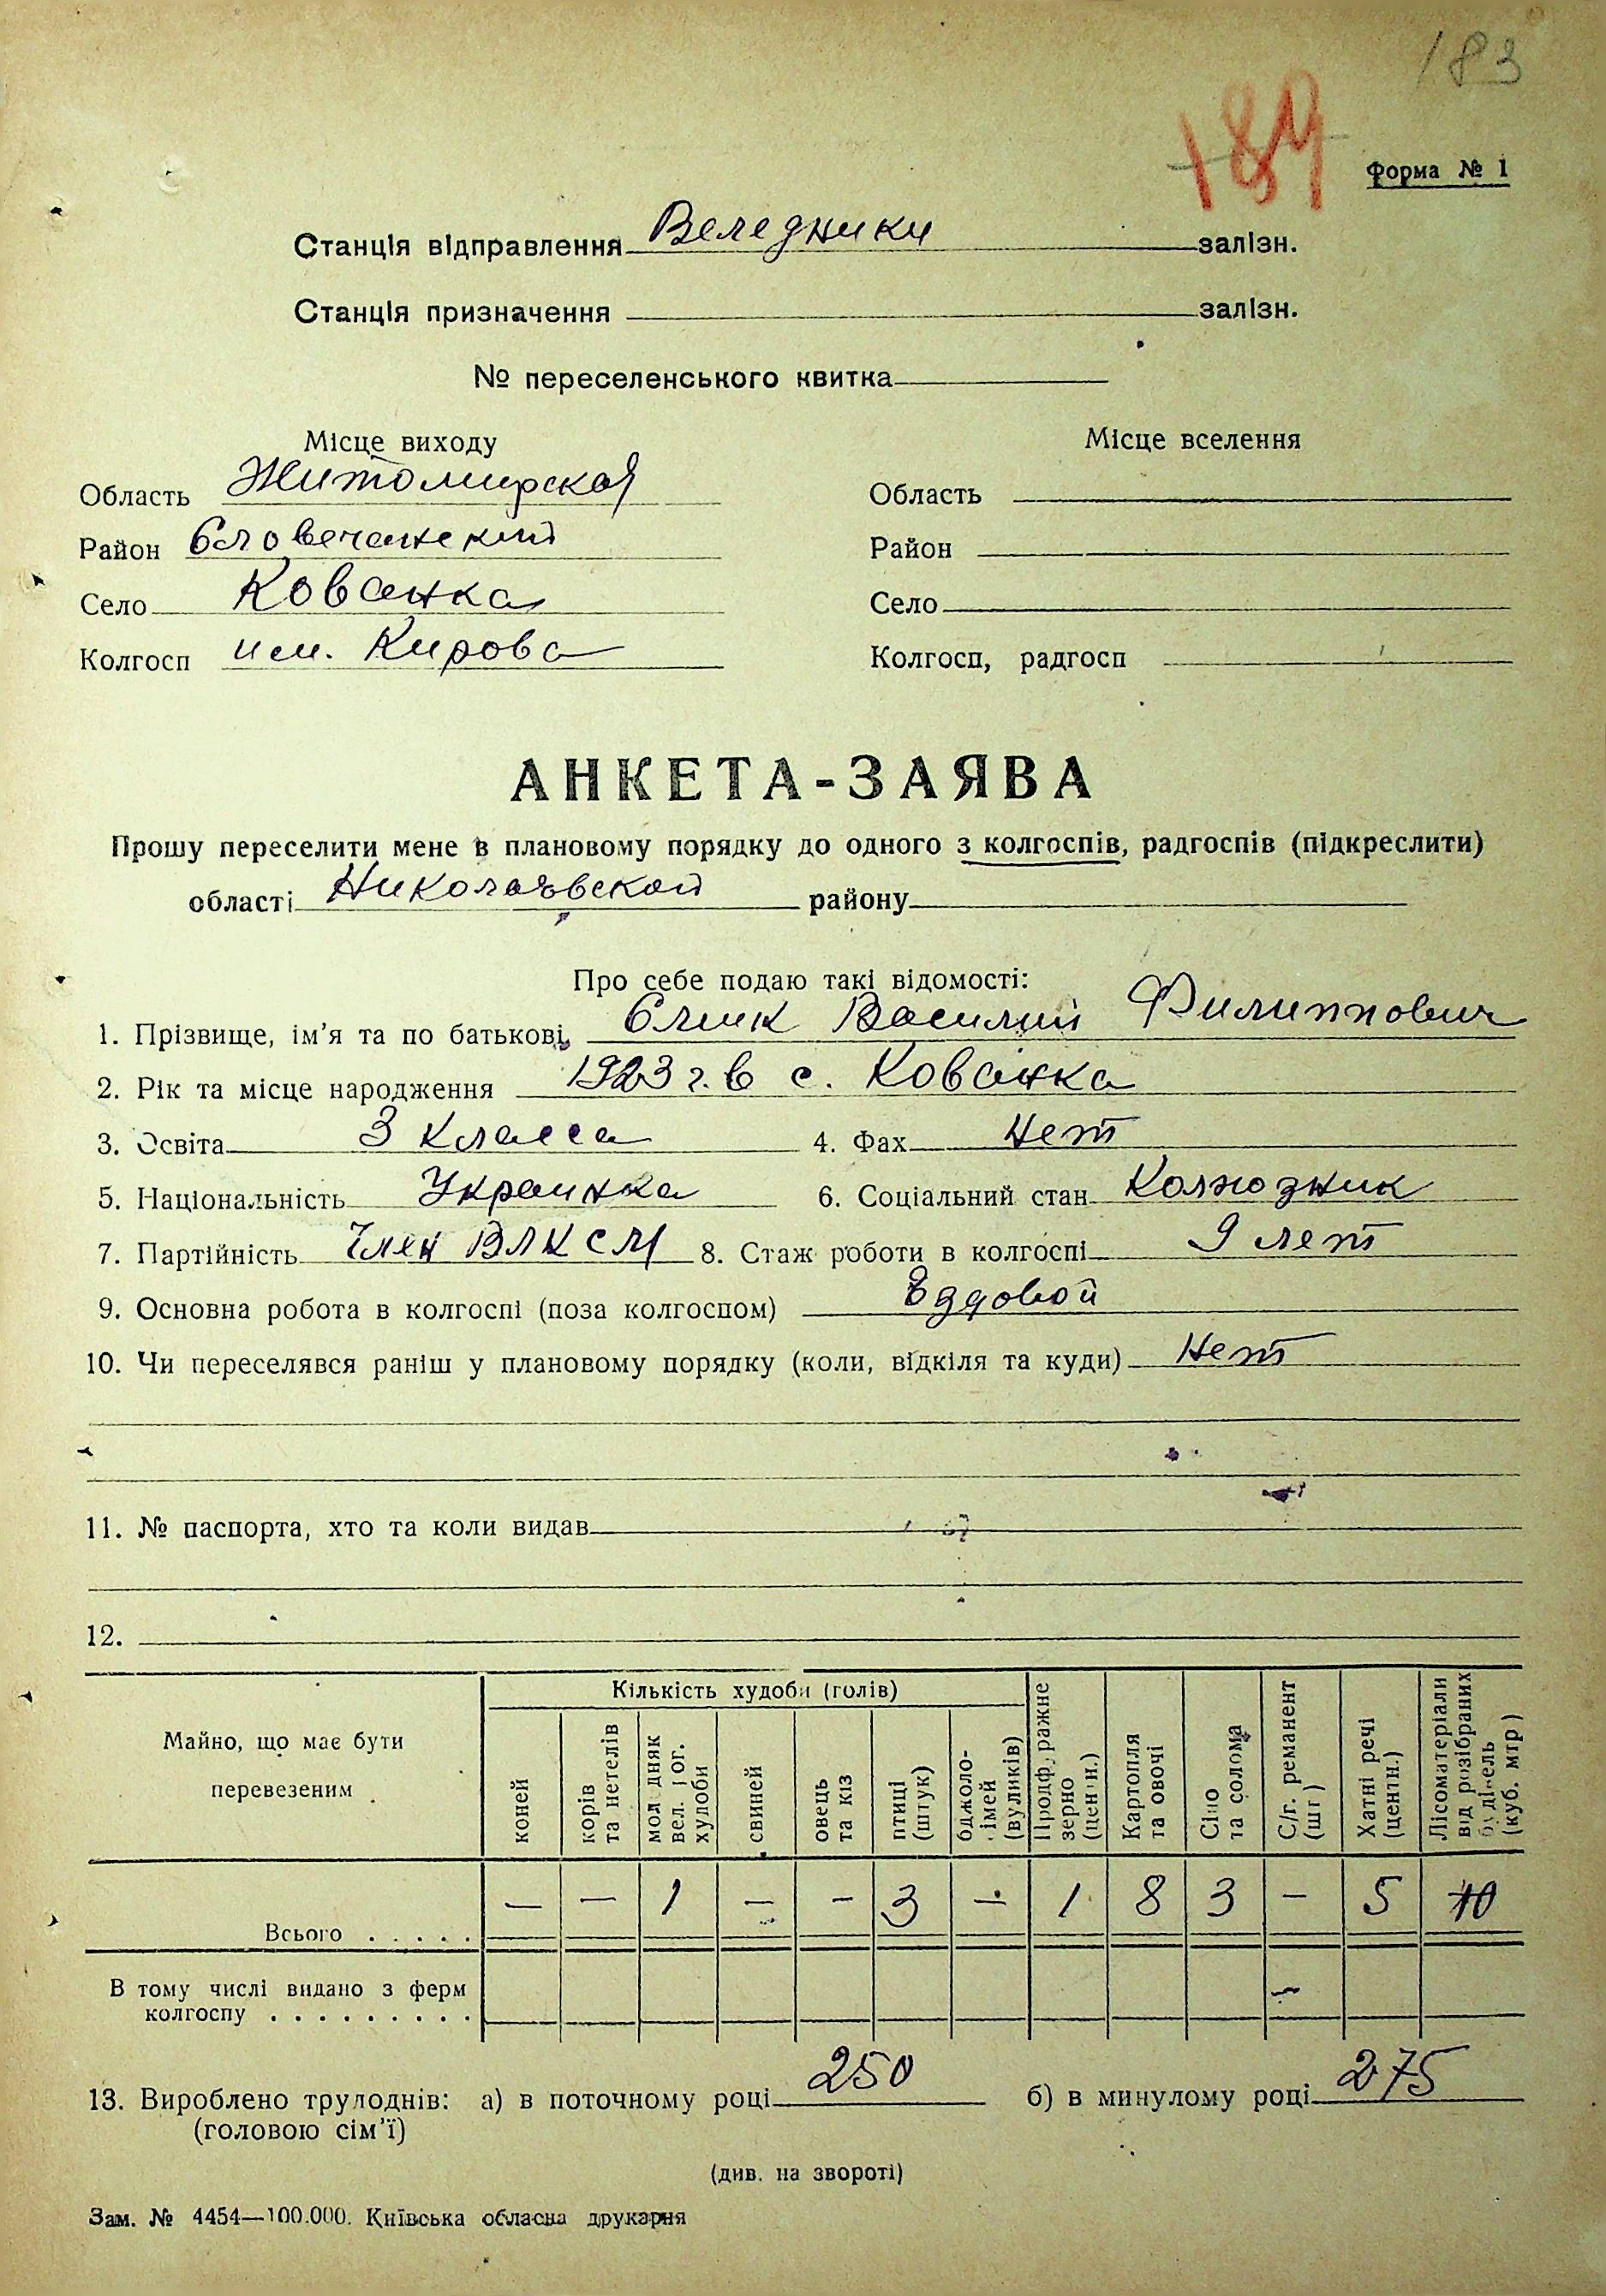 183
184
Форма № 1
Станція відправлення Веледники залізн.
Станція призначення залізн.
№ переселенського квитка
Місце виходу Місце вселення
Область Житомирская Область
Район Словечанский Район
Село Кованка Село
Колгосп им. Кирова Колгосп, радгосп
АНКЕТА-ЗАЯВА
Прошу переселити мене в плановому порядку до одного з колгоспів, радгоспів (підкреслити)
області Николаевской району
Про себе подаю такі відомості:
1. Прізвище, ім'я та по батькові Василий Филиппович
2. Рік та місце народження 1923 г. в с. Кованка
3. Освіта 3 класса 4. Фах Нет
5. Національність Украинка 6. Соціальний стан Колхозник
7. Партійність Член ВЛКСМ 8. Стаж роботи в колгоспі 9 лет
9. Основна робота в колгоспі (поза колгоспом) Ездовой
10. Чи переселявся раніш у плановому порядку (коли, відкіля та куди) Нет
11. № паспорта, хто та коли видав
12.
Майно, що має бути перевезеним
Кількість худоби (голів)
коней
корів та нетелів
молодняк вел. рог. худоби
свиней
овець та кіз
птиці (штук)
бджолосімей (вуликів)
Продфуражне зерно (центн.)
Картопля та овочі
Сіно та солома
С/г. реманент (шт)
Хатні речі (центн.)
Лісоматеріали від розібраних будівель (куб. мтр)
Всього . . . . . — — 1 — - 3 — 1 8 3 — 5 10
В тому числі видано з ферм
колгоспу . . . . . . . . . -
13. Вироблено трудоднів: а) в поточному році 250 б) в минулому році 275
(головою сім'ї)
(див. на звороті)
Зам. № 4454—100.000. Київська обласна друкарня